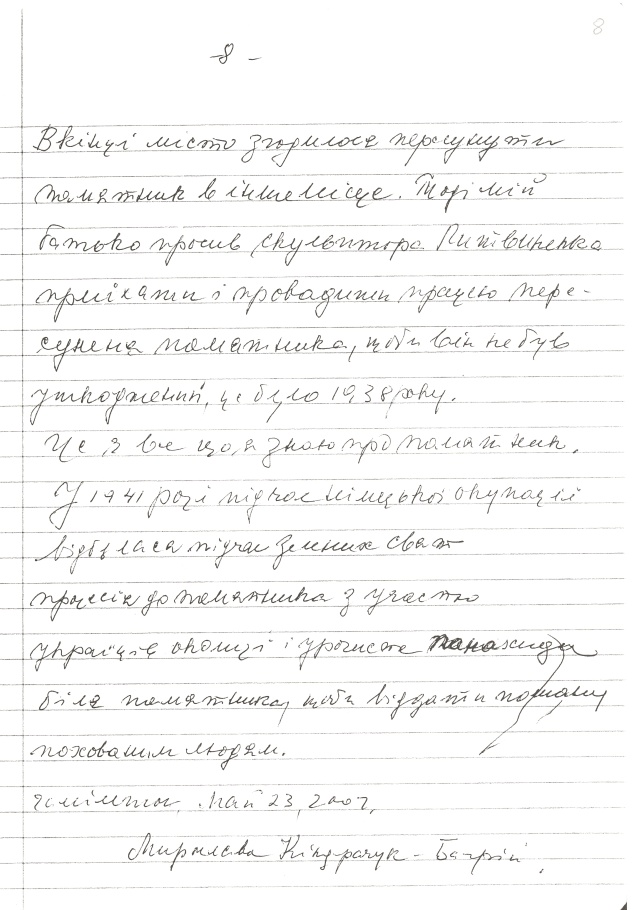 8
- 8 -
Вкінці місто згодилося пересунути
памятник в інше місце. Тоді мій
батько просив скульптора Литвиненка
приїхати і провадити працею пере-
суненя памятника, щоби він не був
ушкоджений, це було 1938 року.
Це є все що я знаю про памятник.
У 1941 році підчас німецької окупації
відбулася підчас Зелених Свят
процесія до памятника з участю
українців околиці і урочиста панахида
біля памятника, щоби віддати пошану
похованим людям.
Май 23, 2007,
Мирослава Кіндрачук-Багрій